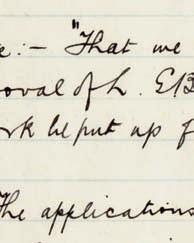 :- "That we
oval of h. E/B
rk be put up f
The applications